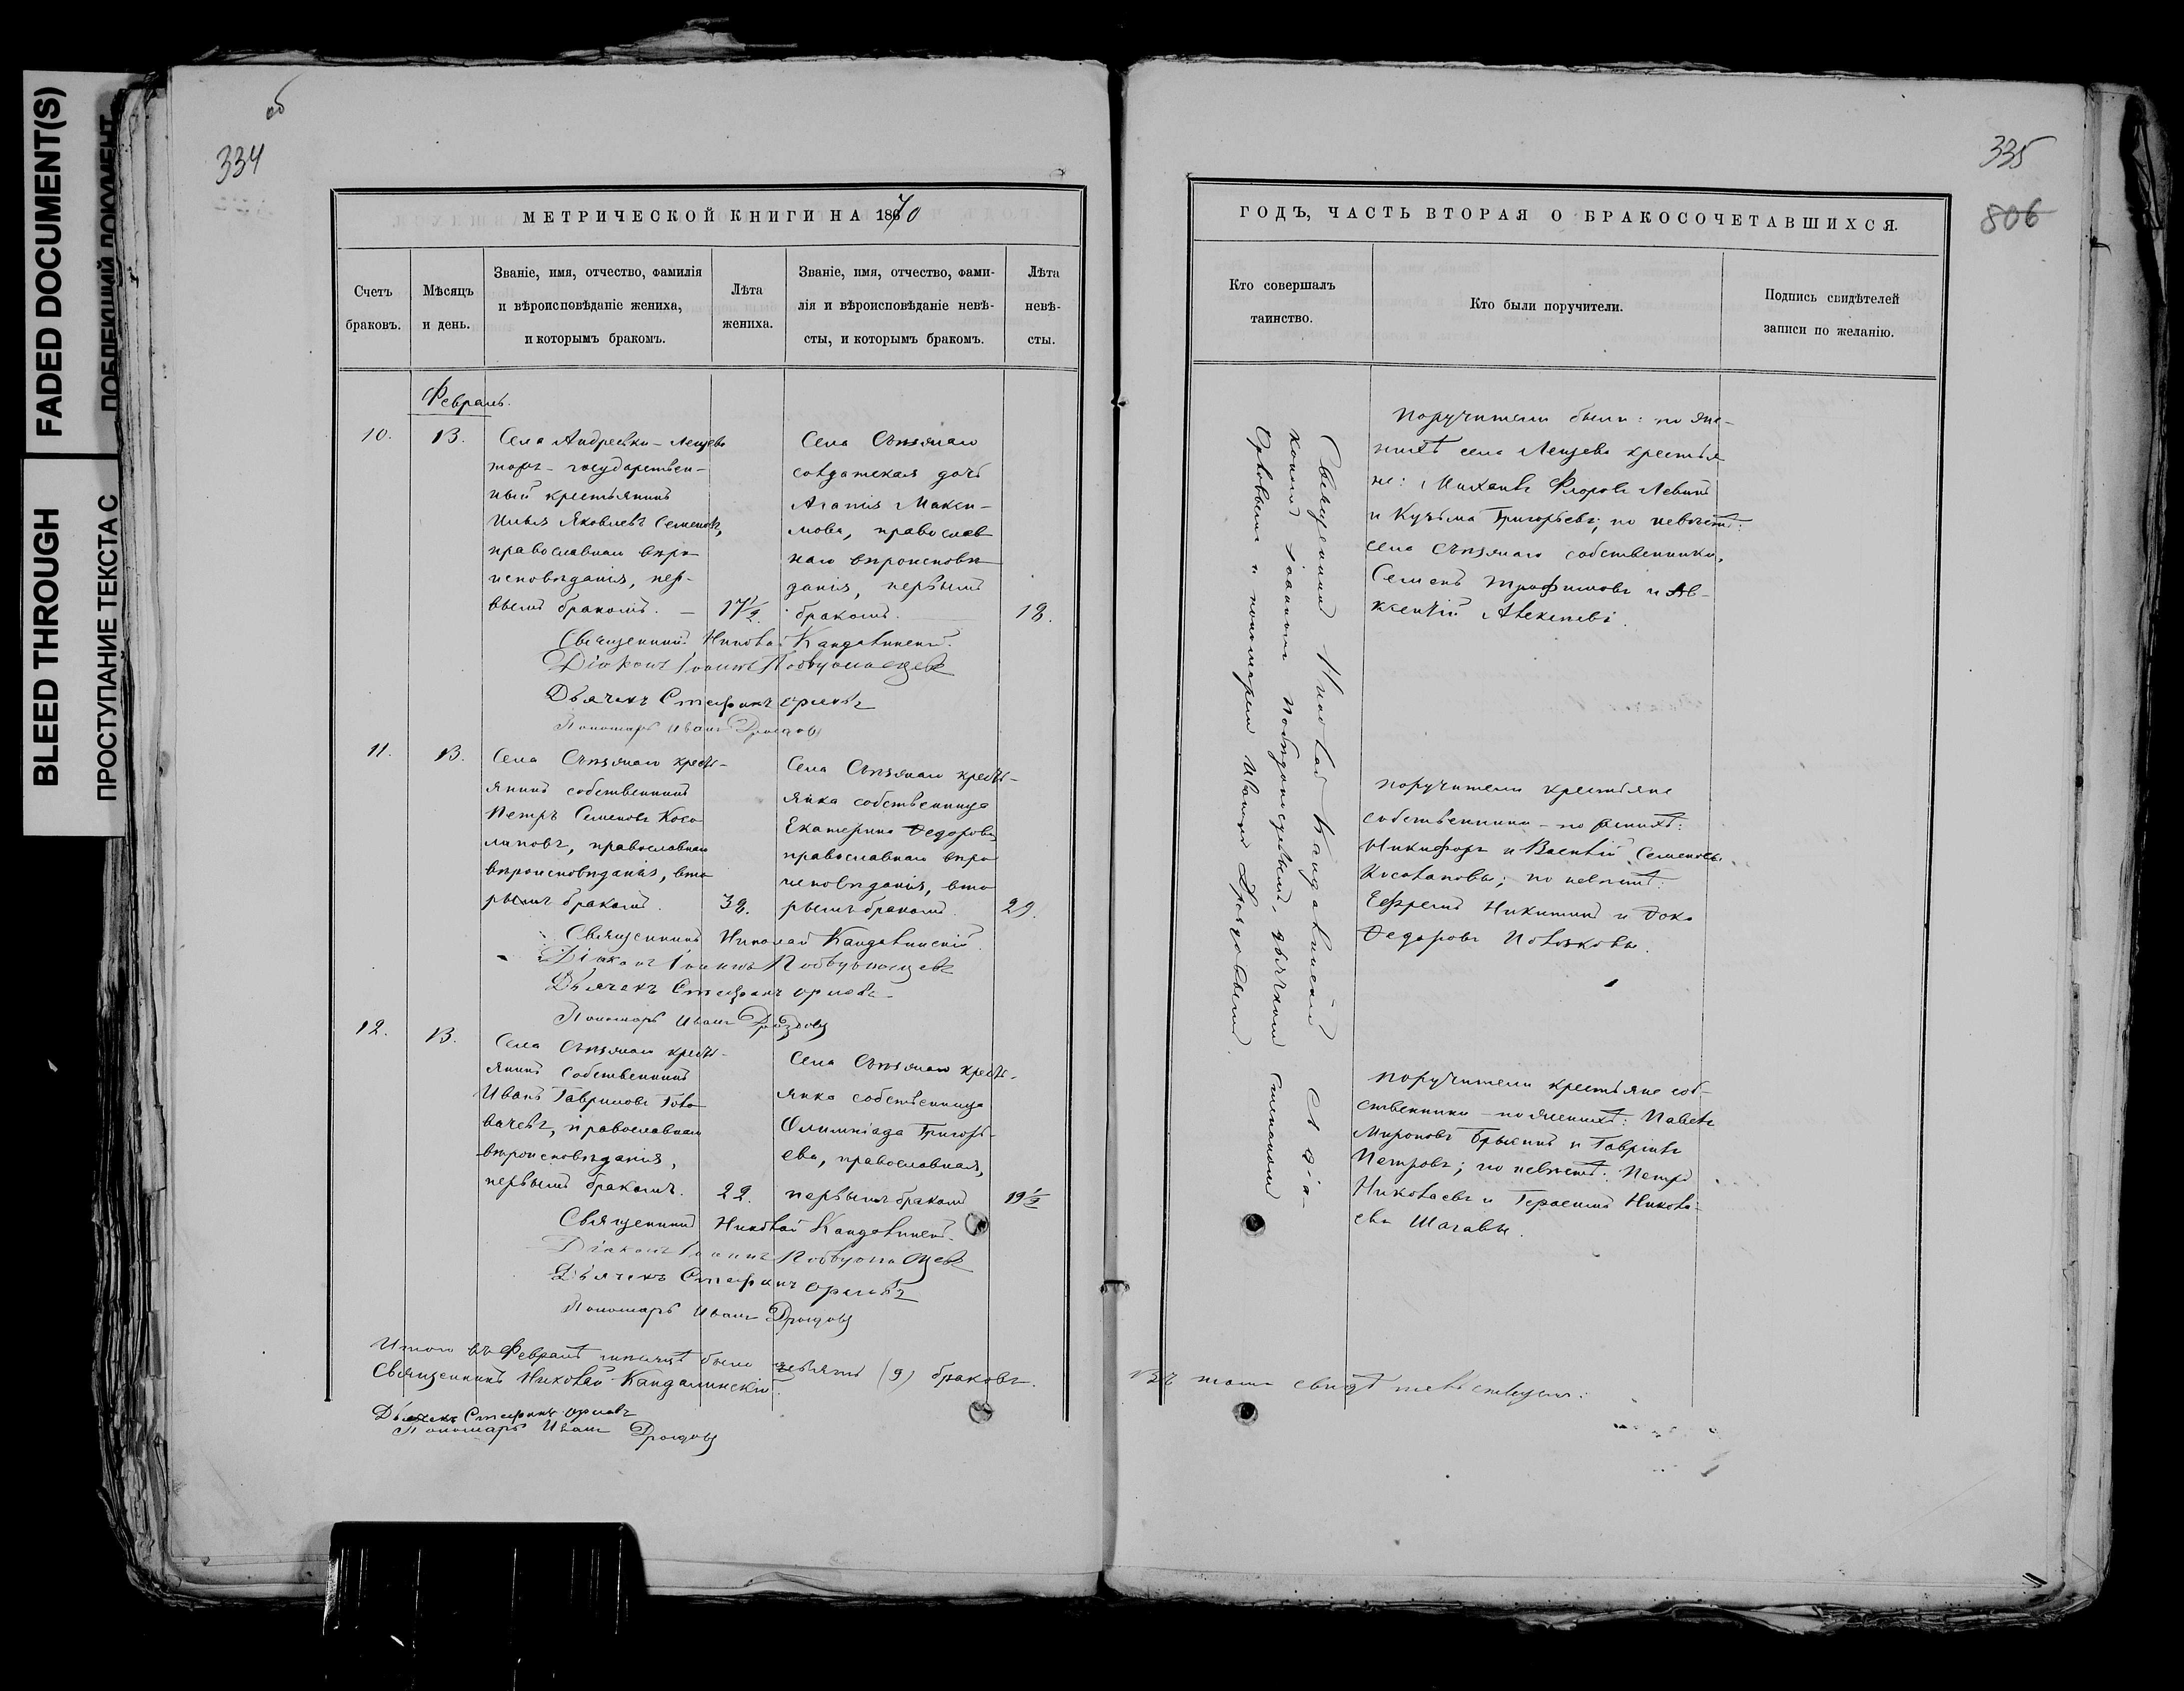 FADED DOCUMENT(S)
BLEED THROUGH
ПРОСТУПАНИЕ ТЕКСТА С
об
334
МЕТРИЧЕСКОЙ КНИГИ НА 1870
Счетъ браковъ.
Мѣсяцъ и день.
Званіе, имя, отчество, фамилія
и вѣроисповѣданіе жениха,
и которымъ бракомъ.
Лѣта жениха.
Званіе, имя, отчество, фами-
лія и вѣроисповѣданіе невѣ-
сты, и которымъ бракомъ.
Лѣта невѣ-
сты.
Февраль.
10.
13.
Села Андреевки-Лещево
тожъ - государствен-
ный крестьянинъ
Илья Яковлевъ Семеновъ,
православнаго вѣро
исповѣданія, пер-
вымъ бракомъ. —
17½
Села
солдатская дочь
Агапія Макси-
мова, православ
наго вѣроисповѣ
данія, первымъ
бракомъ.
18.
Священникъ Николай Кандалинскій.
Діаконъ Іоаннъ Побѣдоносцевъ
Дьячекъ Стефанъ Орловъ
Пономарь Иванъ Дроздовъ
11.
13.
Села кресть-
янинъ собственникъ
Петръ Семеновъ Косо
лаповъ, православнаго
вѣроисповѣданія, вто
рымъ бракомъ.
38.
Села кресть-
янка собственница
Екатерина Ѳедорова
православнаго вѣро
исповѣданія, вто
рымъ бракомъ.
29.
Священникъ Николай Кандалинскій
Діаконъ Іоаннъ Побѣдоносцевъ
Дьячекъ Стефанъ Орловъ
Пономарь Иванъ Дроздовъ
12.
13.
Села кресть-
янинъ собственникъ
Иванъ Гавриловъ Голо
вачевъ, православнаго
вѣроисповѣданія,
первымъ бракомъ.
22.
Села кресть-
янка собственница
Олимпіада Григорь-
ева, православная,
первымъ бракомъ
19½
Священникъ Николай Кандалинскій.
Діаконъ Іоаннъ Побѣдоносцевъ
Дьячекъ Стефанъ Орловъ
Пономарь Иванъ Дроздовъ
Итого въ Февралѣ мѣсяцѣ было девять (9) браковъ.
Священникъ Николай Кандалинскій.
Дьячекъ Стефанъ Орловъ
Пономарь Иванъ Дроздовъ
335
806
ГОДЪ, ЧАСТЬ ВТОРАЯ О БРАКОСОЧЕТАВШИХСЯ.
Кто совершалъ
таинство.
Кто были поручители.
Подпись свидѣтелей
записи по желанію.
Священникъ Николай Кандалинскій съ діа-
кономъ Іоанномъ Побѣдоносцевымъ, дьячкомъ Степаномъ
Орловымъ и пономаремъ Иваномъ Дроздовымъ.
Поручители были: по же-
нихѣ села Лещева крестья
не: Михаилъ Флоровъ Левинъ
и Кузьма Григорьевъ; по невѣстѣ:
села собственники,
Семенъ Трофимовъ и Ав-
ксентій
Поручители крестьяне
собственники - по женихѣ:
Никифоръ и Василій Семеновы
Косолаповы; по невѣстѣ:
Ефремъ Никитинъ и Ѳока
Ѳедоровъ
Поручители крестьяне соб-
ственники - по женихѣ: Павелъ
Мироновъ и Гаврилъ
Петровъ; по невѣстѣ: Петръ
Николаевъ и Герасимъ Никола-
евъ
Въ томъ свидѣтельствуемъ: